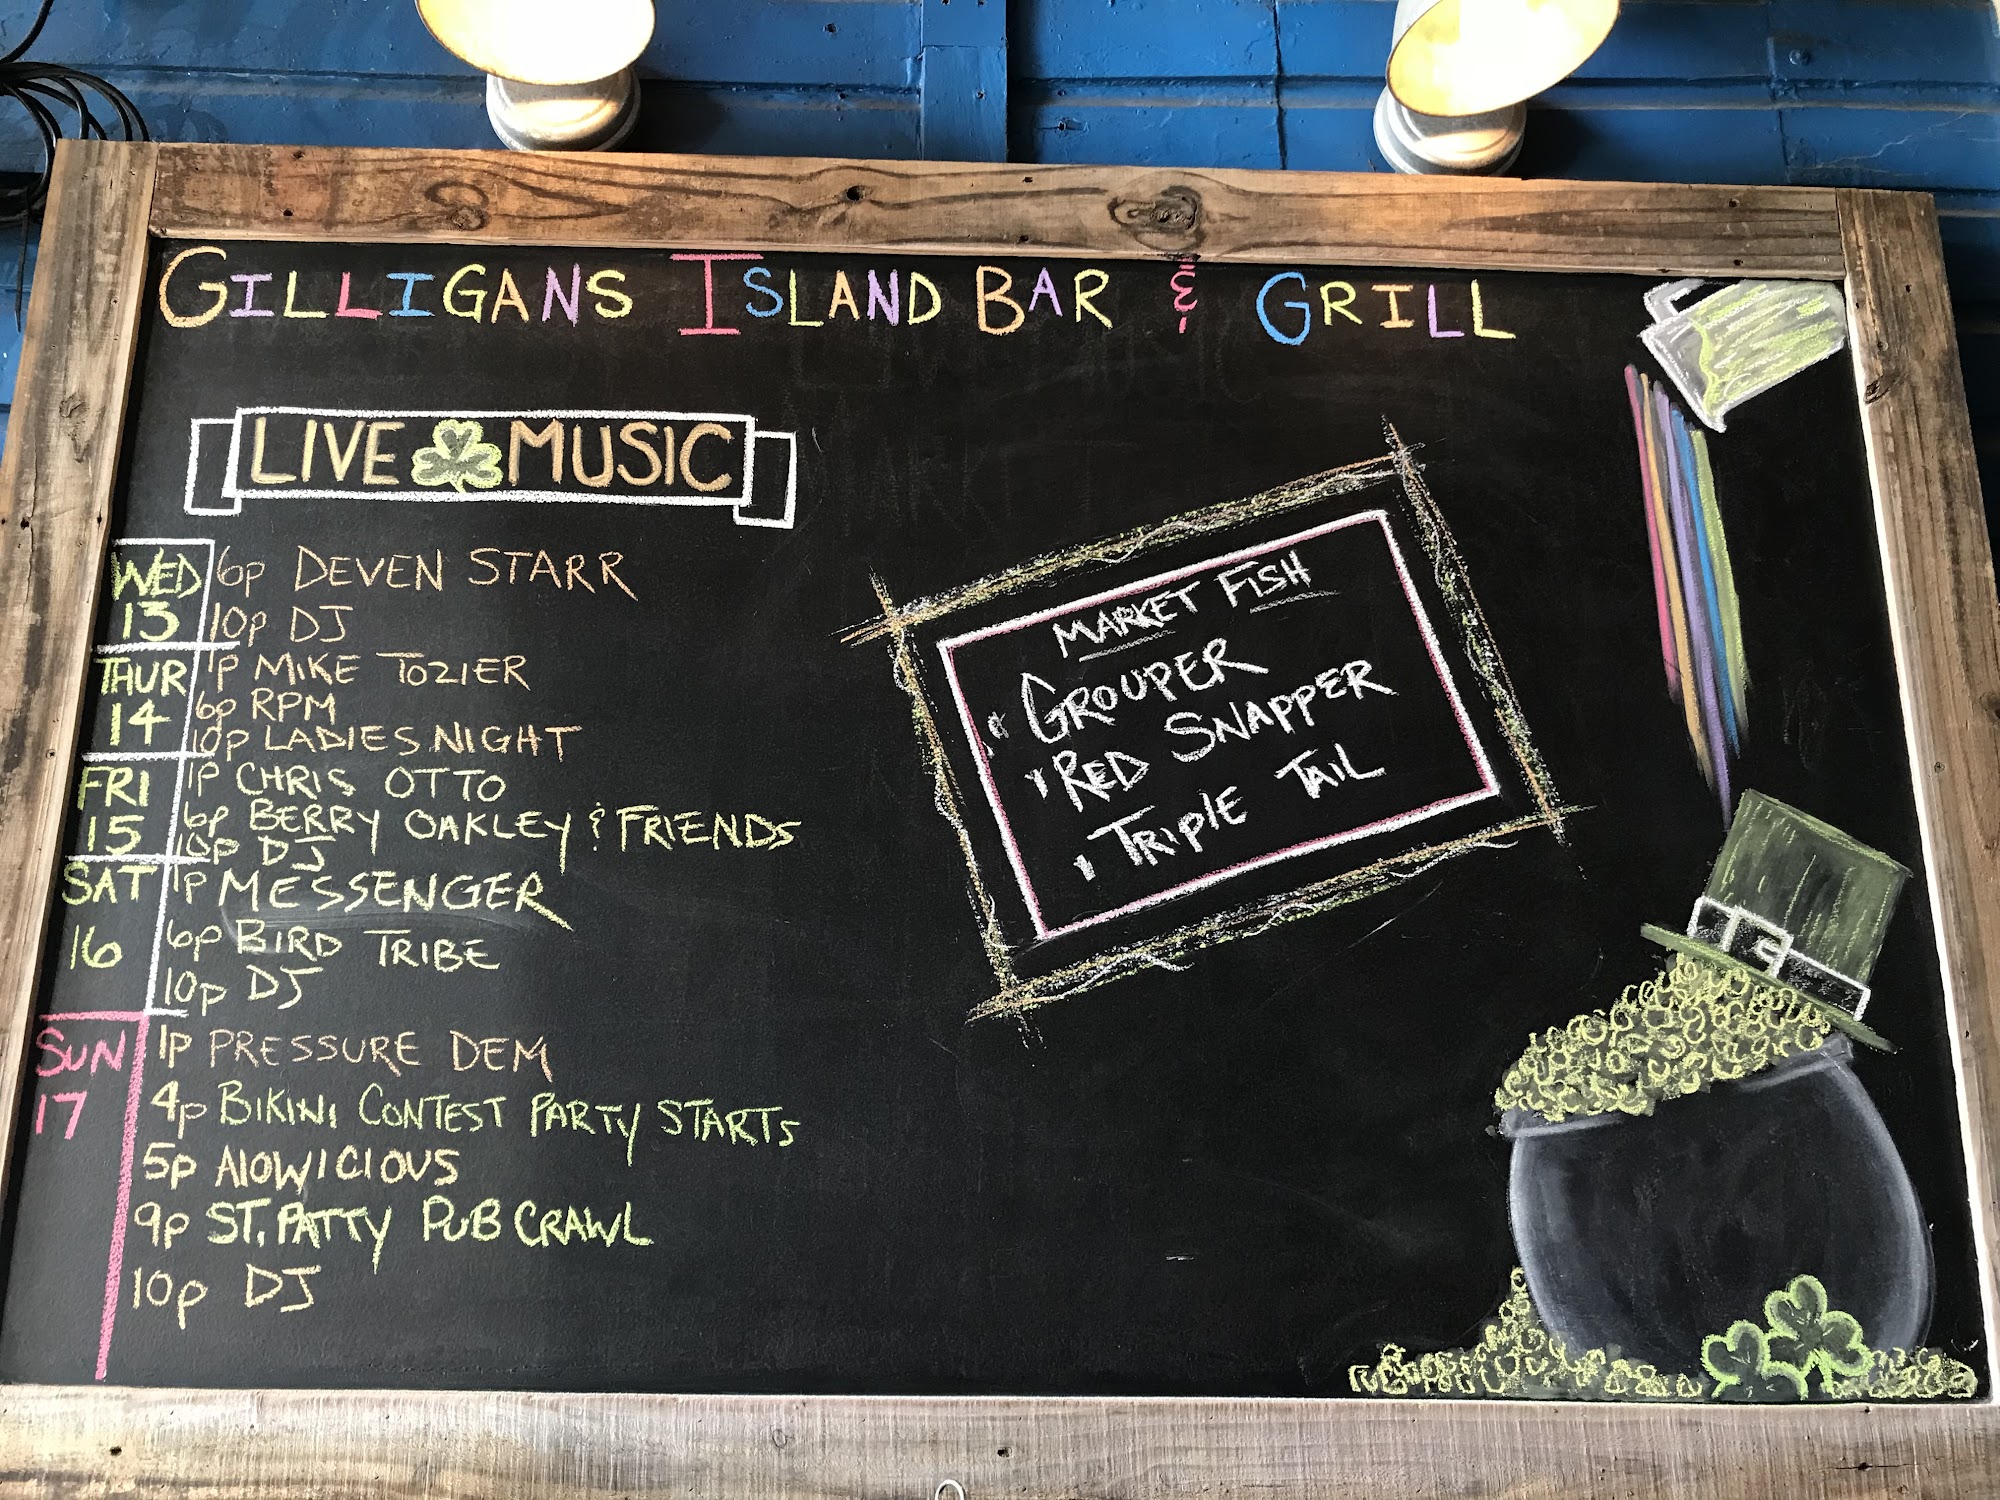 GILLIGANS ISLAND BAR & GRILL
LIVE MUSIC
WED 13
6p DEVEN STARR
10p DJ
THUR 14
1p MIKE TOZIER
6p RPM
10p LADIES NIGHT
FRI 15
1P CHRIS OTTO
6p BERRY OAKLEY & FRIENDS
10p DJ
SAT 16
1P MESSENGER
6p BIRD TRIBE
10p DJ
SUN 17
1P PRESSURE DEM
4p BIKINI CONTEST PARTY STARTS
5p AlOWICIOUS
9p ST. PATTY PUB CRAWL
10p DJ
MARKET FISH
GROUPER
RED SNAPPER
TRIPlE TAIL